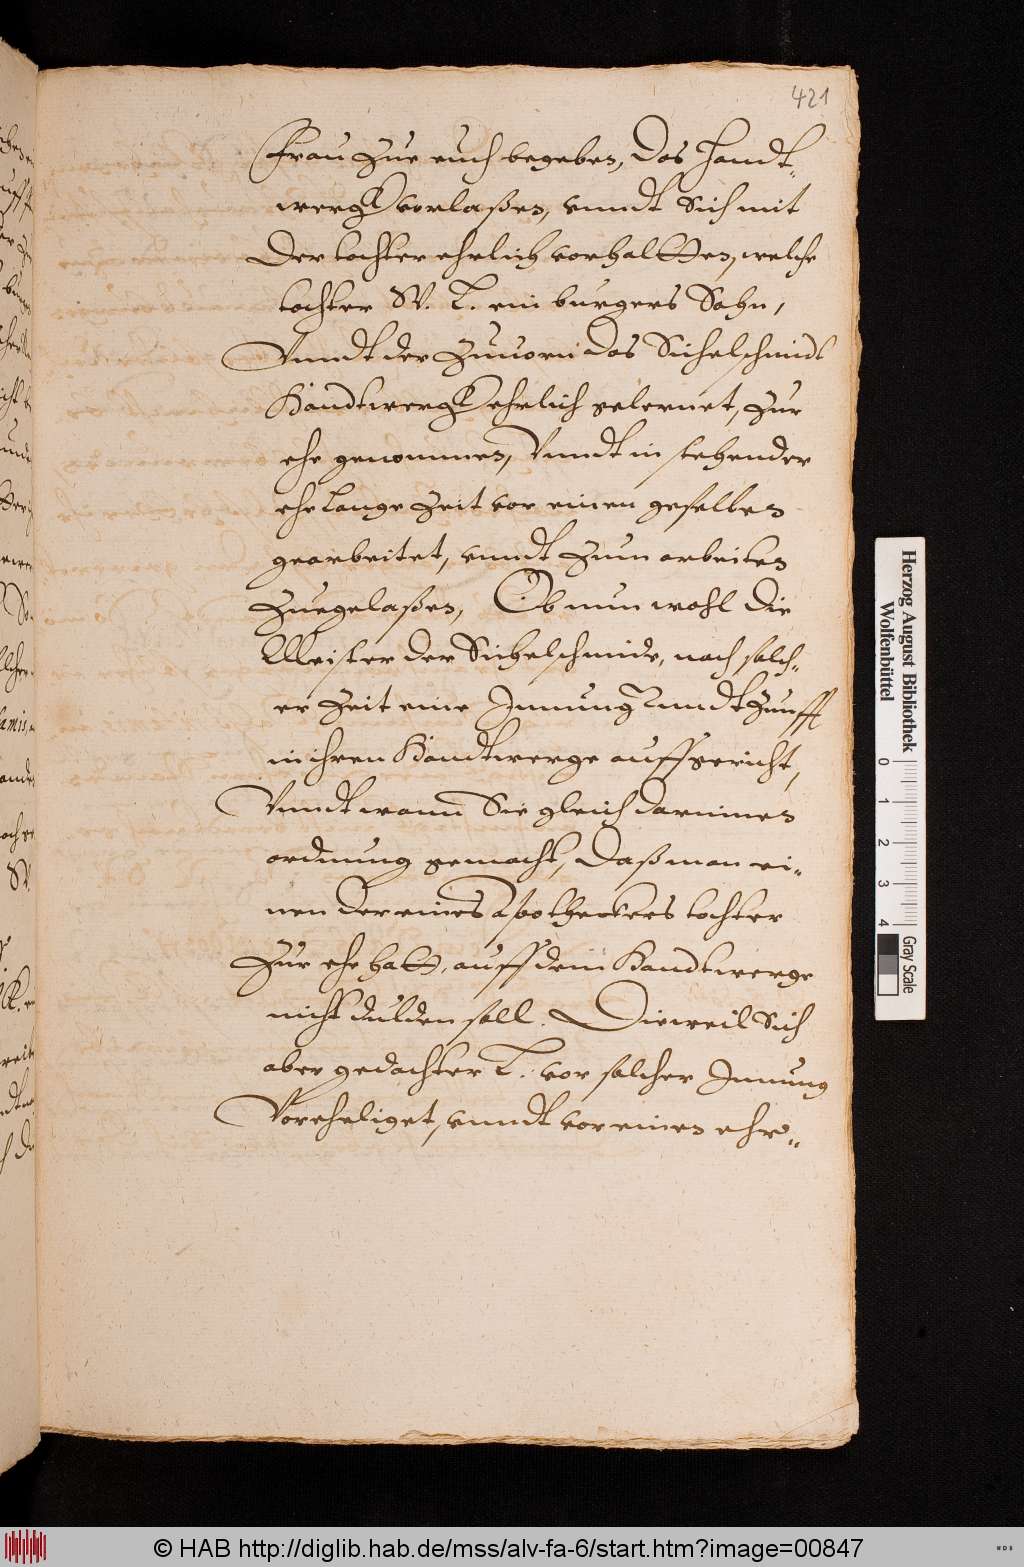 421
Frau zue euch begeben, das Handt-
wergk vorlaßen, vnndt Sich mit
der tochter ehrlich vorhaltten, welche
tochter W. T. ein burgers Sohn,
Vnndt der zuuorn das Sichelschmidt
Handtwergk ehrlich gelernet, zur
ehe genommen, Vnndt in stehender
ehe lange zeit vor einen gesellen
gearbeitet, vnndt zum arbeiten
zuegelaßen, Ob nun wohl die
Meister der Sichelschmide, nach solch-
er Zeit eine Innung vnndt Zunfft
in ihren Handtwerge auffgericht,
Vnndt wann Sie gleich darinnen
ordnung gemacht, daß man ei-
nen der eines Apotheckers tochter
zur ehe hatt, auff dem Handtwerge
nicht dulden soll. Dieweil Sich
aber gedachter T. vor solcher Innung
Voreheliget, vnndt vor einen ehr-
Herzog August Bibliothek
Wolfenbüttel
0 1 2 3 4
Gray Scale
© HAB http://diglib.hab.de/mss/alv-fa-6/start.htm?image=00847
WDB